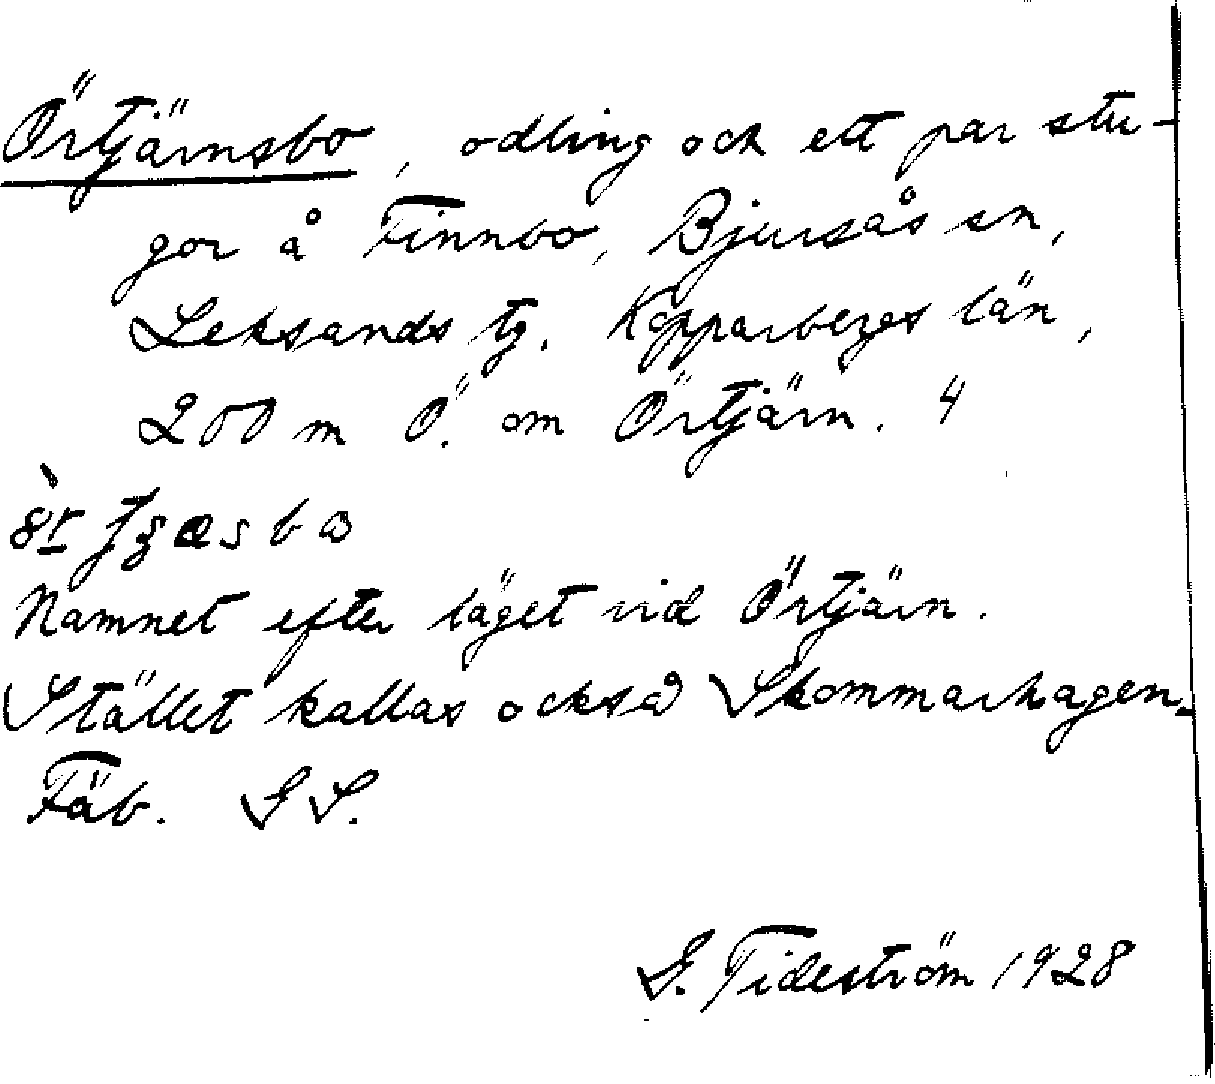 Örtjärnsbo, odling och ett par stu-
gor å Finnbo, Bjursås sn,
Leksands tg. Kopparbergs län,
200 m Ö. om Örtjärn. 4
Namnet efter läget vid Örtjärn.
Stället kallas också Skommarhagen.
Fäb. S S.
G. Tideström 1928